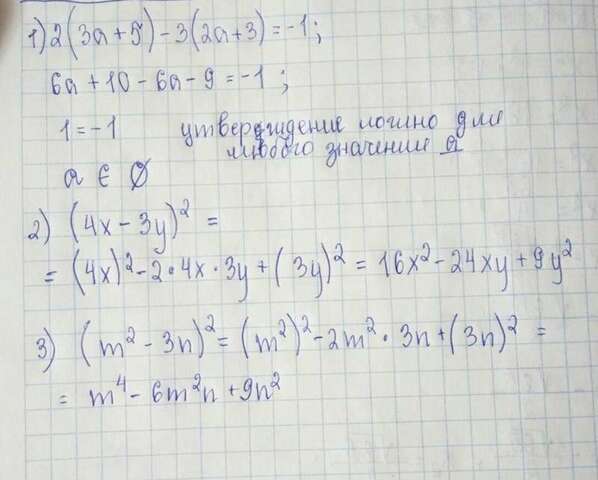 1) 2(3a+5)-3(2a+3)=-1;
6a+10-6a-9=-1;
1=-1 утверждение ложно для
любого значения a
a ∈ ∅
2) (4x-3y)² =
= (4x)²-2·4x·3y+(3y)² = 16x²-24xy+9y²
3) (m²-3n)² = (m²)²-2m²·3n+(3n)² =
= m⁴-6m²n+9n²